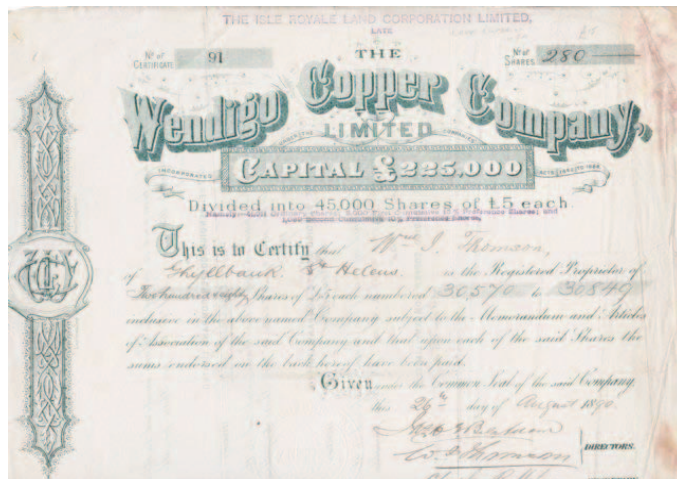 THE ISLE ROYALE LAND CORPORATION LIMITED,
LATE
No of Certificate 91
THE
No of Shares 280
Wendigo Copper Company,
LIMITED
INCORPORATED
CAPITAL £225,000
Divided into 45,000 Shares of £5 each.
This is to Certify that Wm I. Thomson,
of Ghyllbank St Helens is the Registered Proprietor of
Two hundred eighty Shares of £5 each numbered 30570 to 30849
inclusive in the above named Company subject to the Memorandum and Articles
of Association of the said Company and that upon each of the said Shares the
sums endorsed on the back hereof have been paid.
Given under the Common Seal of the said Company
this 26th day of August 1890.
DIRECTORS.